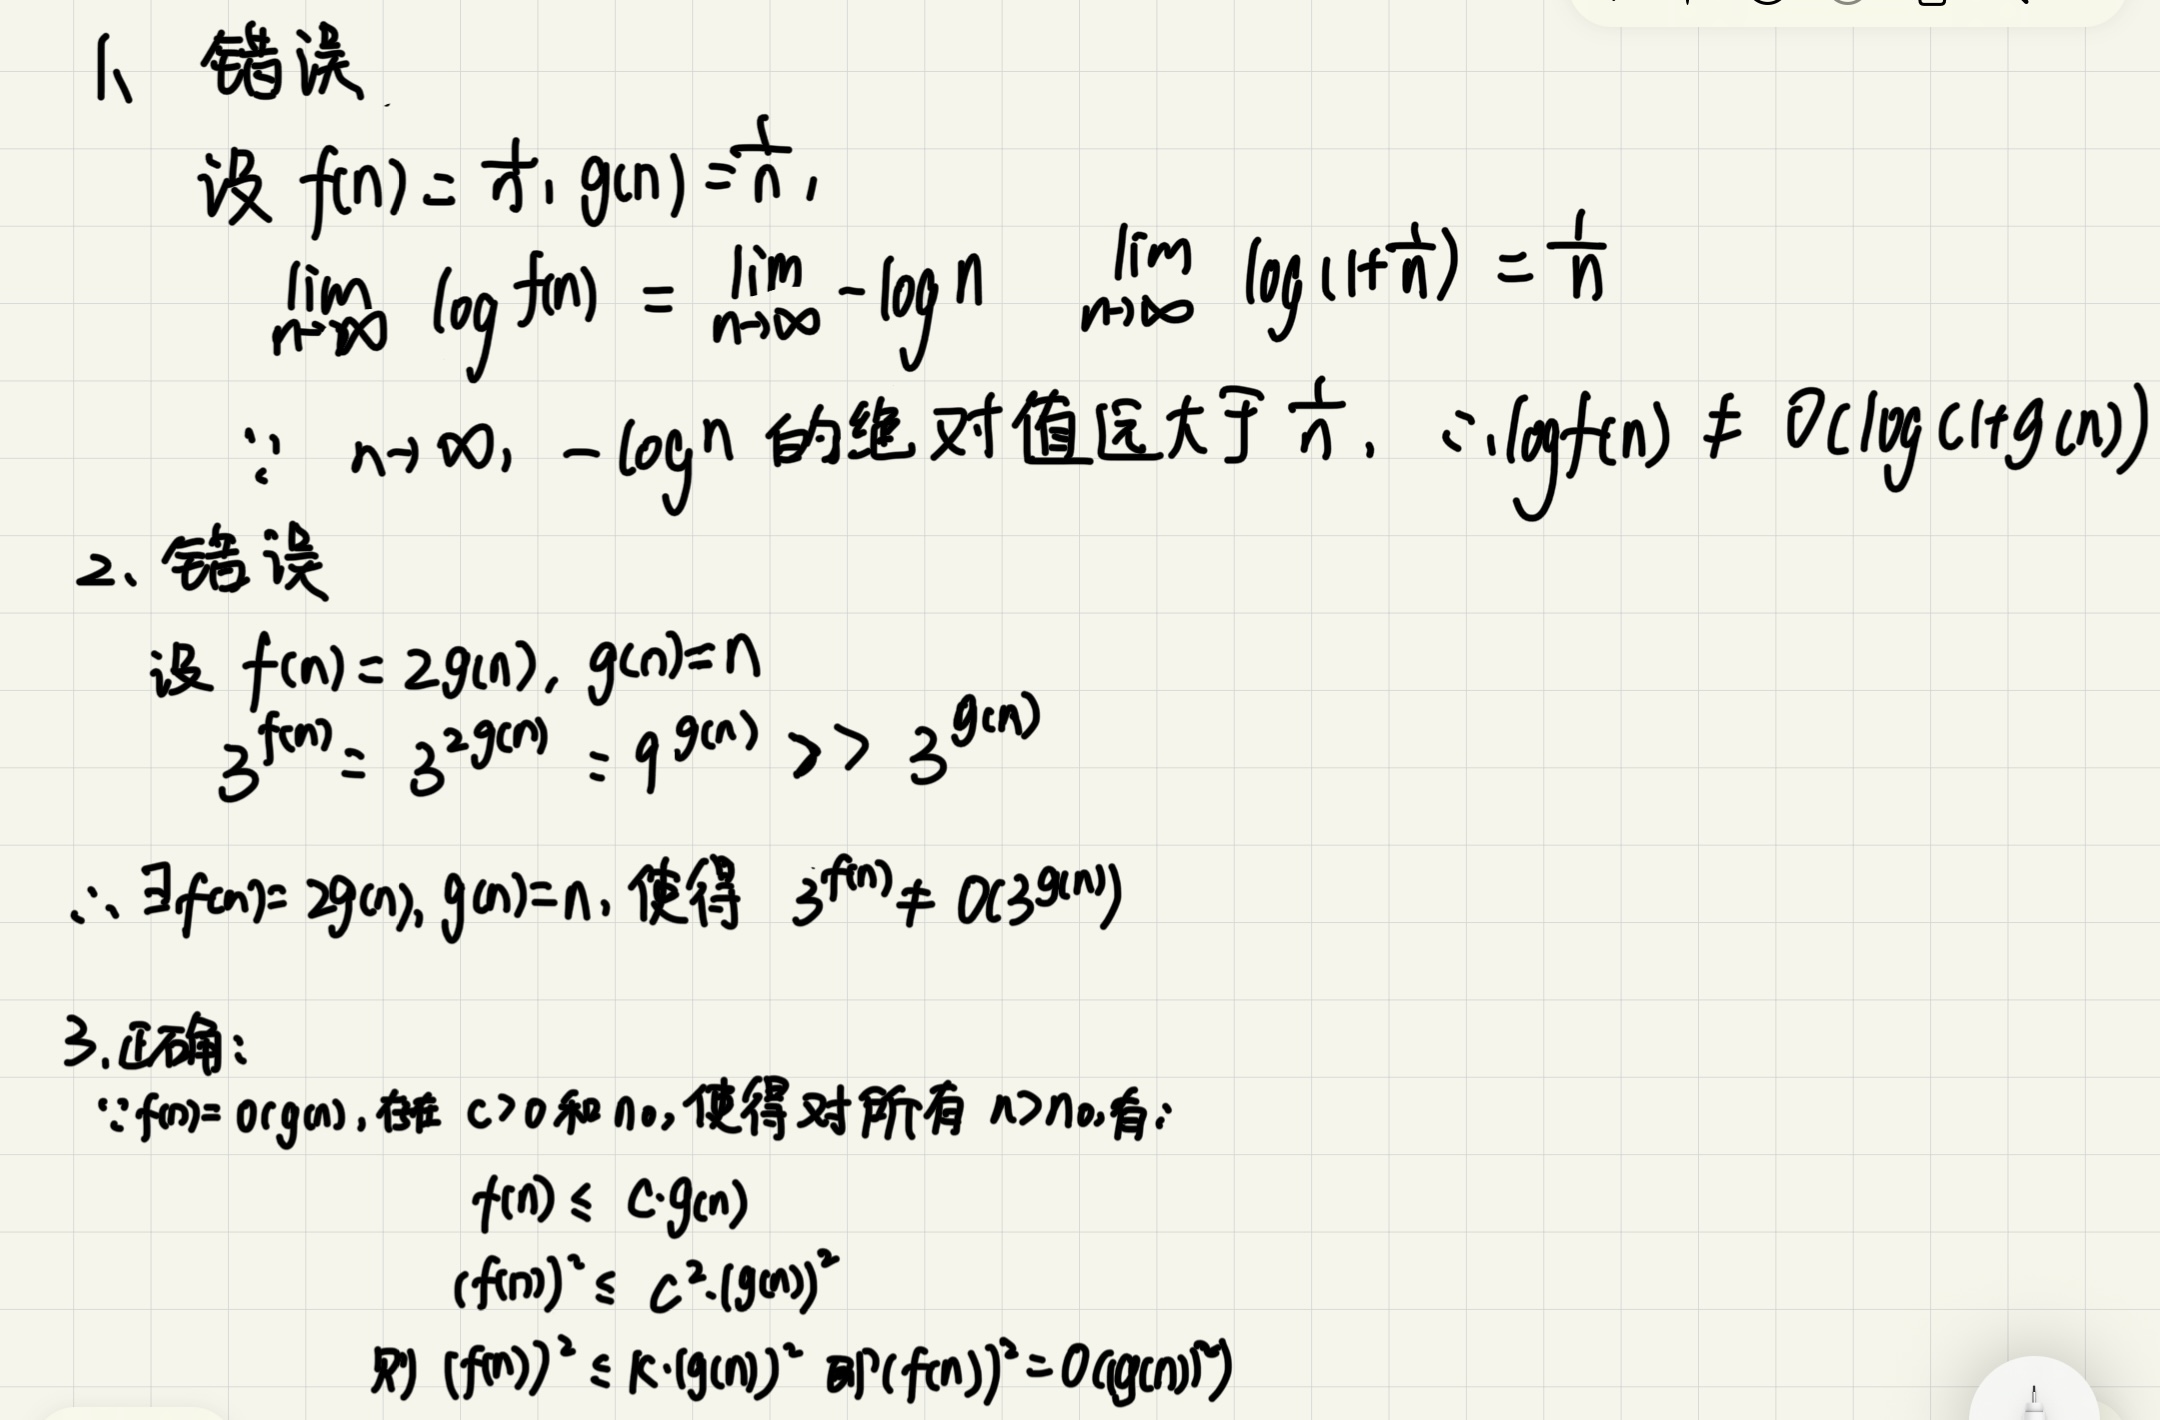 1、错误
设 f(n) = 1/n, g(n) = 1/n,
lim n→∞ log f(n) = lim n→∞ -log n lim n→∞ log(1+1/n) = 1/n
∵ n→∞, -log n 的绝对值远大于 1/n, ∴ logf(n) ≠ O(log(1+g(n))
2、错误
设 f(n) = 2g(n), g(n)=n
3^f(n) = 3^2g(n) = 9^g(n) >> 3^g(n)
∴ ∃f(n)=2g(n), g(n)=n, 使得 3^f(n) ≠ O(3^g(n))
3.正确:
∵f(n)=O(g(n), 存在 c>0 和 n₀, 使得对所有 n>n₀,有:
f(n) ≤ C·g(n)
(f(n))² ≤ C²·(g(n))²
则 (f(n))² ≤ K·(g(n))² 即(f(n))² = O((g(n))²)